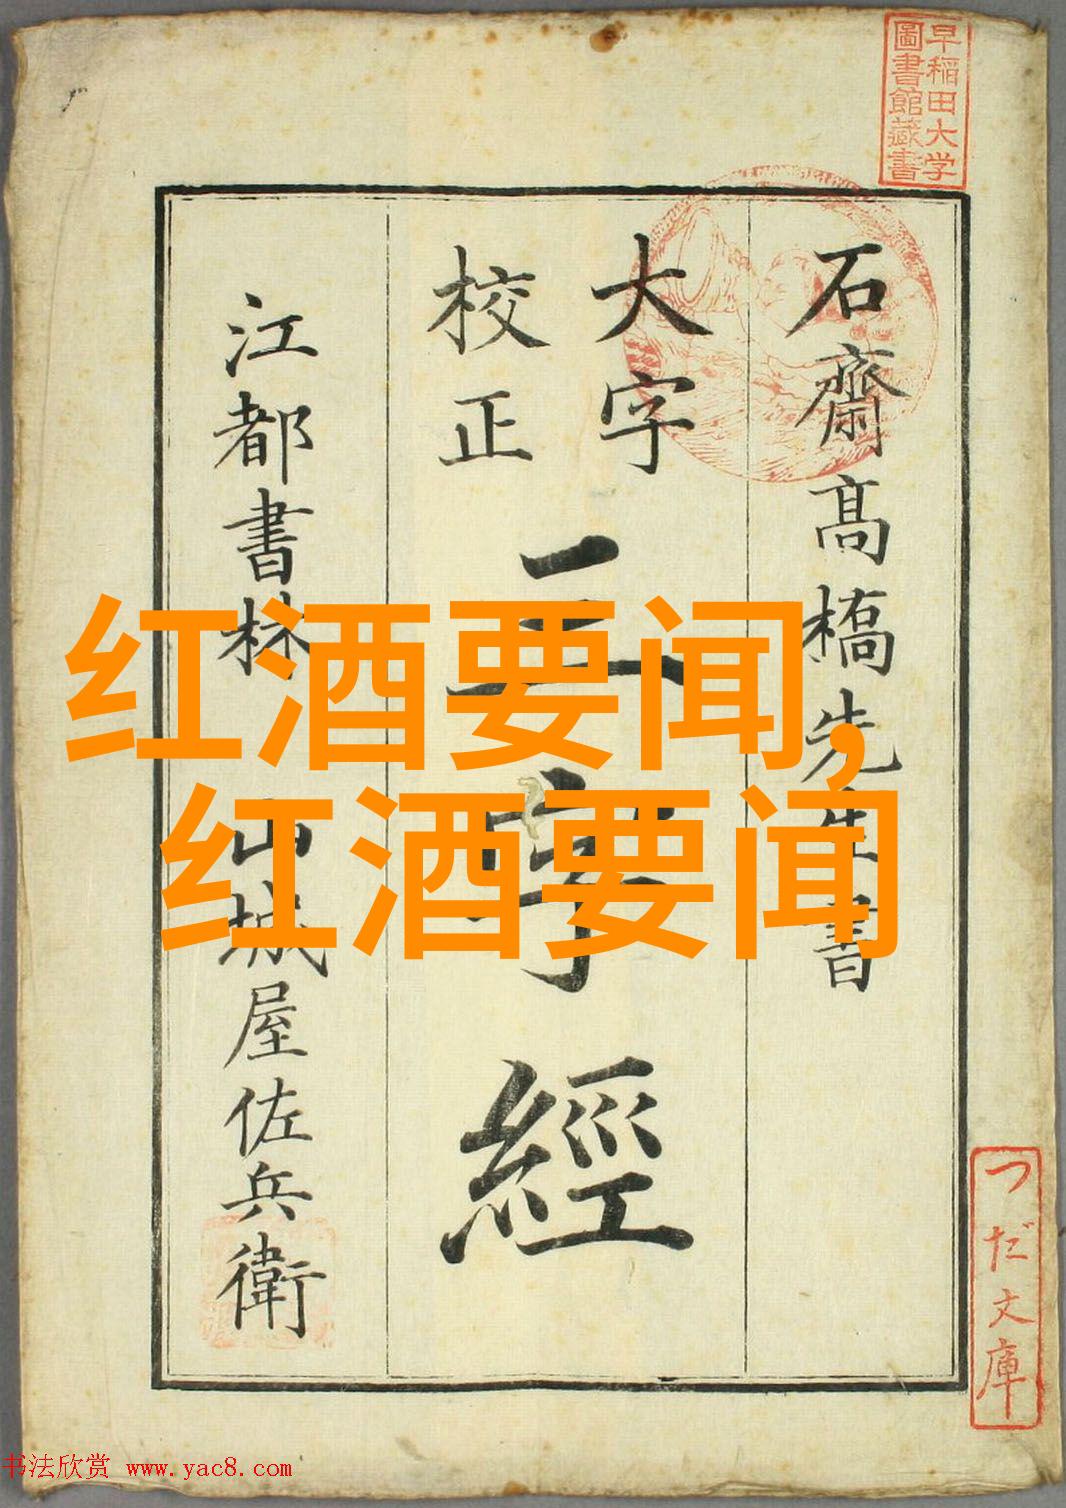 早稲田大学
圖書館藏書
石齋高橋先生書
大字
校正
三字經
江都書林
山城屋佐兵衛
红酒要闻,
红酒要闻
つだ文庫
书法欣赏 www.yac8.com